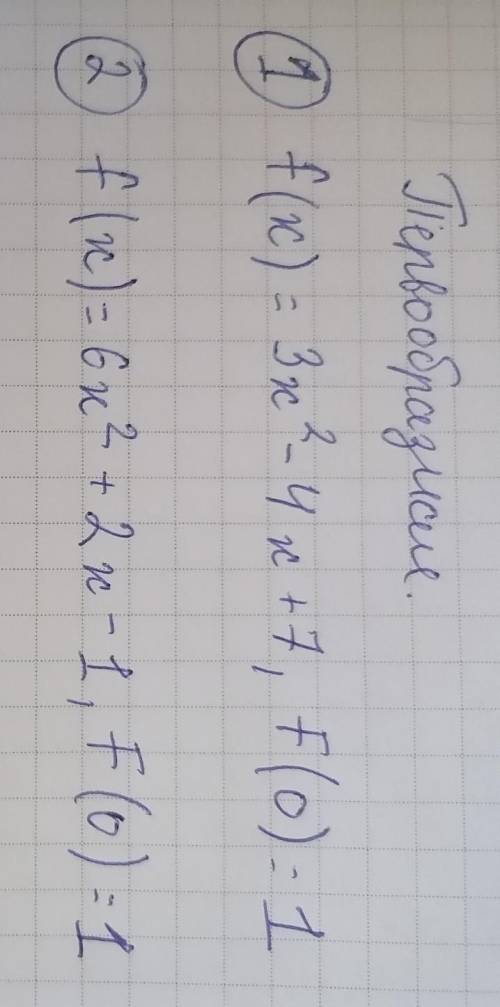 Первообразные.
① f(x) = 3x² - 4x + 7, F(0) = 1
② f(x) = 6x² + 2x - 1, F(0) = 1